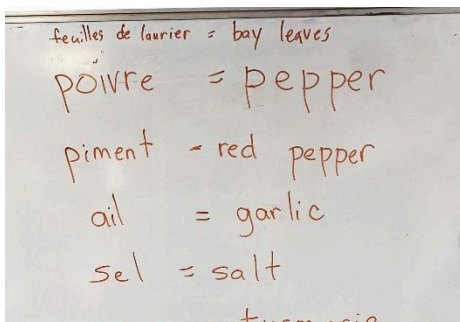 feuilles de laurier = bay leaves
poivre = pepper
piment - red pepper
ail = garlic
sel = salt